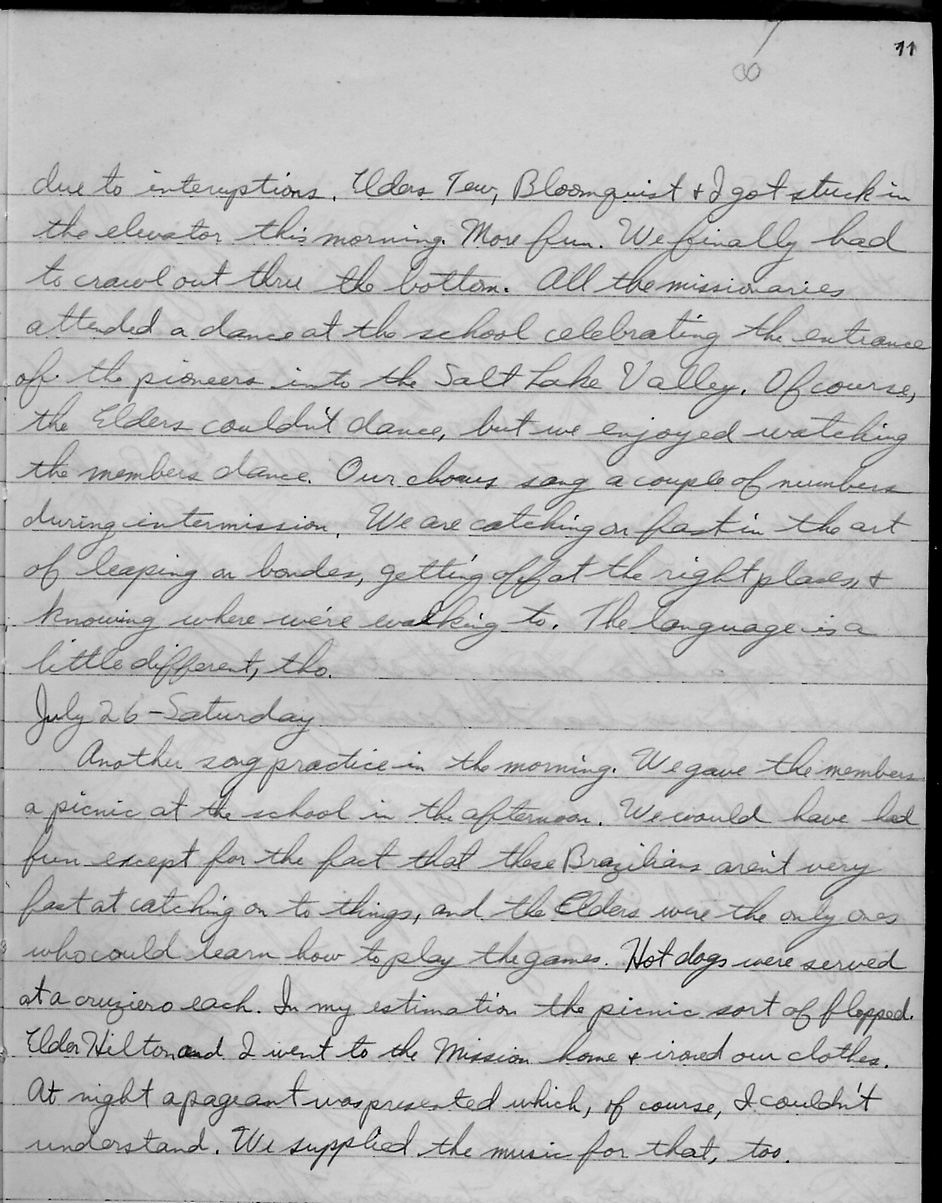 11
8
due to interuptions. Elders Tew, Bloomquist & I got stuck in
the elevator this morning. More fun. We finally had
to crawl out thru the bottom. All the missionaries
attended a dance at the school celebrating the entrance
of the pioneers into the Salt Lake Valley. Of course,
the Elders couldn't dance, but we enjoyed watching
the members dance. Our chorus sang a couple of numbers
during intermission. We are catching on fast in the art
of leaping on bondes, getting off at the right places, &
knowing where we're walking to. The language is a
little different, tho.
July 26 - Saturday
Another song practice in the morning. We gave the members
a picnic at the school in the afternoon. We would have had
fun except for the fact that these Brazilians aren't very
fast at catching on to things, and the Elders were the only ones
who could learn how to play the games. Hot dogs were served
at a cruziero each. In my estimation the picnic sort of flopped.
Elder Hilton and I went to the Mission home & ironed our clothes.
At night a pageant was presented which, of course, I couldn't
understand. We supplied the music for that, too.